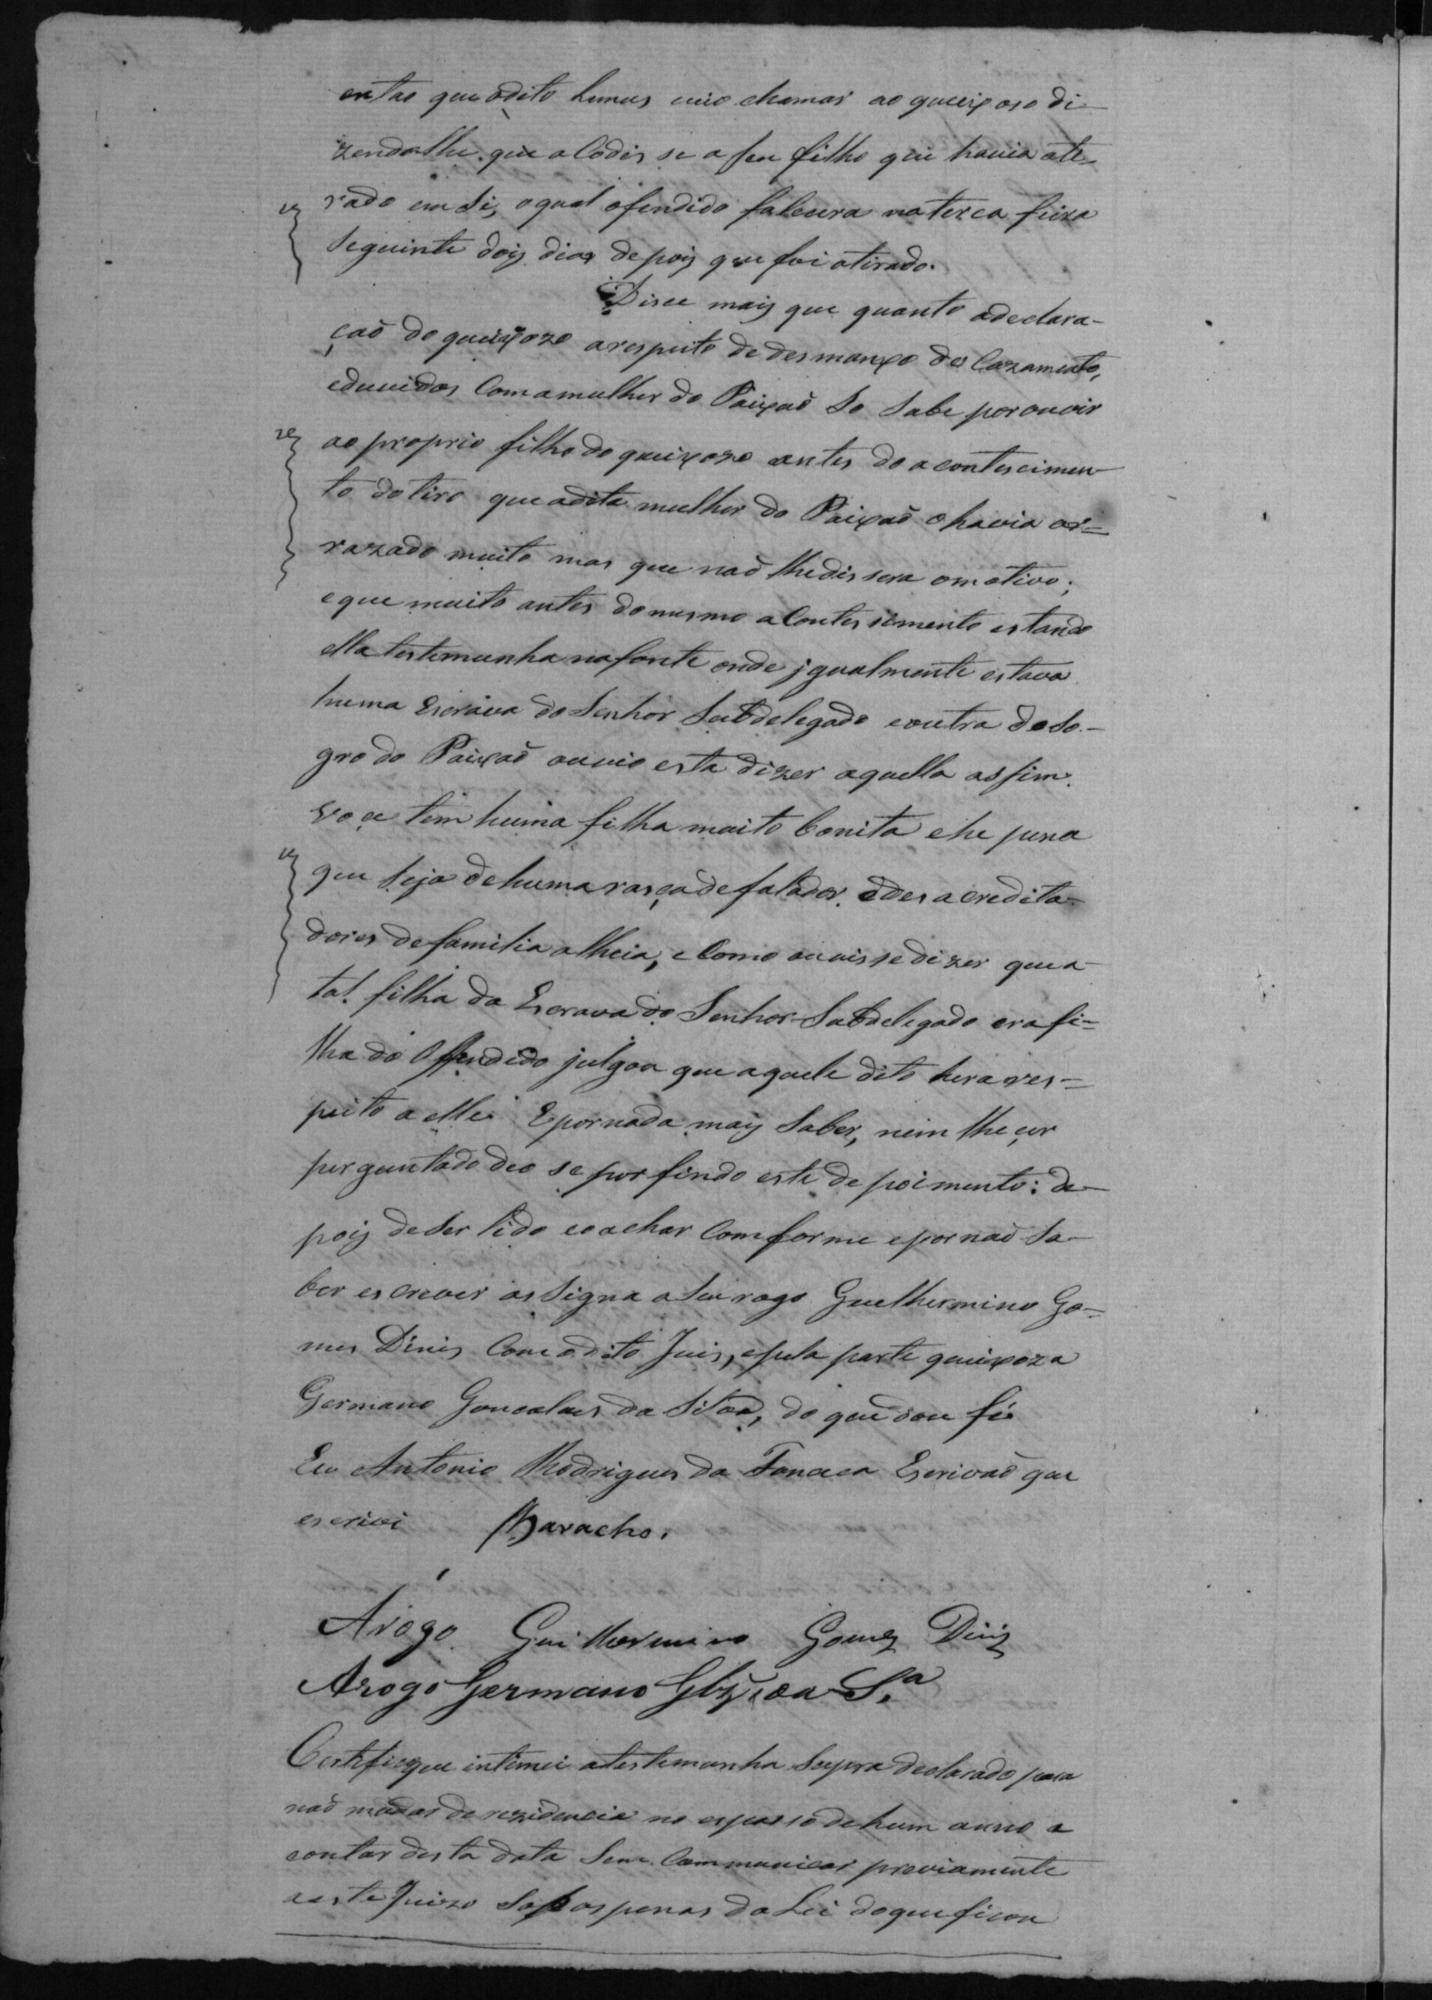 entao que odito Lemus veio chamar ao queixoso di-
zendolhe que acodis se a seu filho que havia ati-
rado em Si, oqual ofendido falecera naterca feira
Seguinte dois dias depois que foi atirado.
Disce mais que quanto adeclara-
çaõ do queixozo arespeito de desmanxo do Cazamento,
eduvidas Comamulher do Paixaõ So Sabe porouvir
ao proprio filho do queixozo antes do acontescimen-
to dotiro que adita mulher do Paixaõ o havia ar=
razado muito mas que naõ lhedissera omotivo;
eque muito antes domesmo aContessimento estando
ella testemunha nafonte onde jgualmente estava
huma Escrava do Senhor Subdelegado eoutra do So-
gro do Paixaõ ouvio esta dizer aquella assim.
Voce tem huma filha muito bonita ehe pena
que Seja dehuma rasça defalador. edesacredita-
dores defamilia alheia, e Como ouvissedizer quea
tal filha da Escrava do Senhor Subdelegado erafi=
lha do Offendido julgou que aquele dito hera res=
peito a elle. Epornada mais Saber, nem lhe ser
perguntado deo se por findo este depoimento: de-
pois deser lido eoachar Comforme epornaõ Sa-
ber escrever assigna aSeu rogo Guelhermino Go-
mes Dinis Com odito Juis, epela parte queixoza
Germano Goncalves da Silva, do que dou fé
Eu Antonio Rodrigues da Fonceca Escrivaõ que
escrivi Baracho.
Arogo Guilhermino Gomes Diniz
Arogo Germano Glz̃ da S.ª
Certificoque intimei atestemunha Supra declarado para
naõ mudar de rezidencia no espasso dehum anno a
contar desta data Sem Communicar previamente
aeste Juizo Sob aspenas da Lei doque ficou